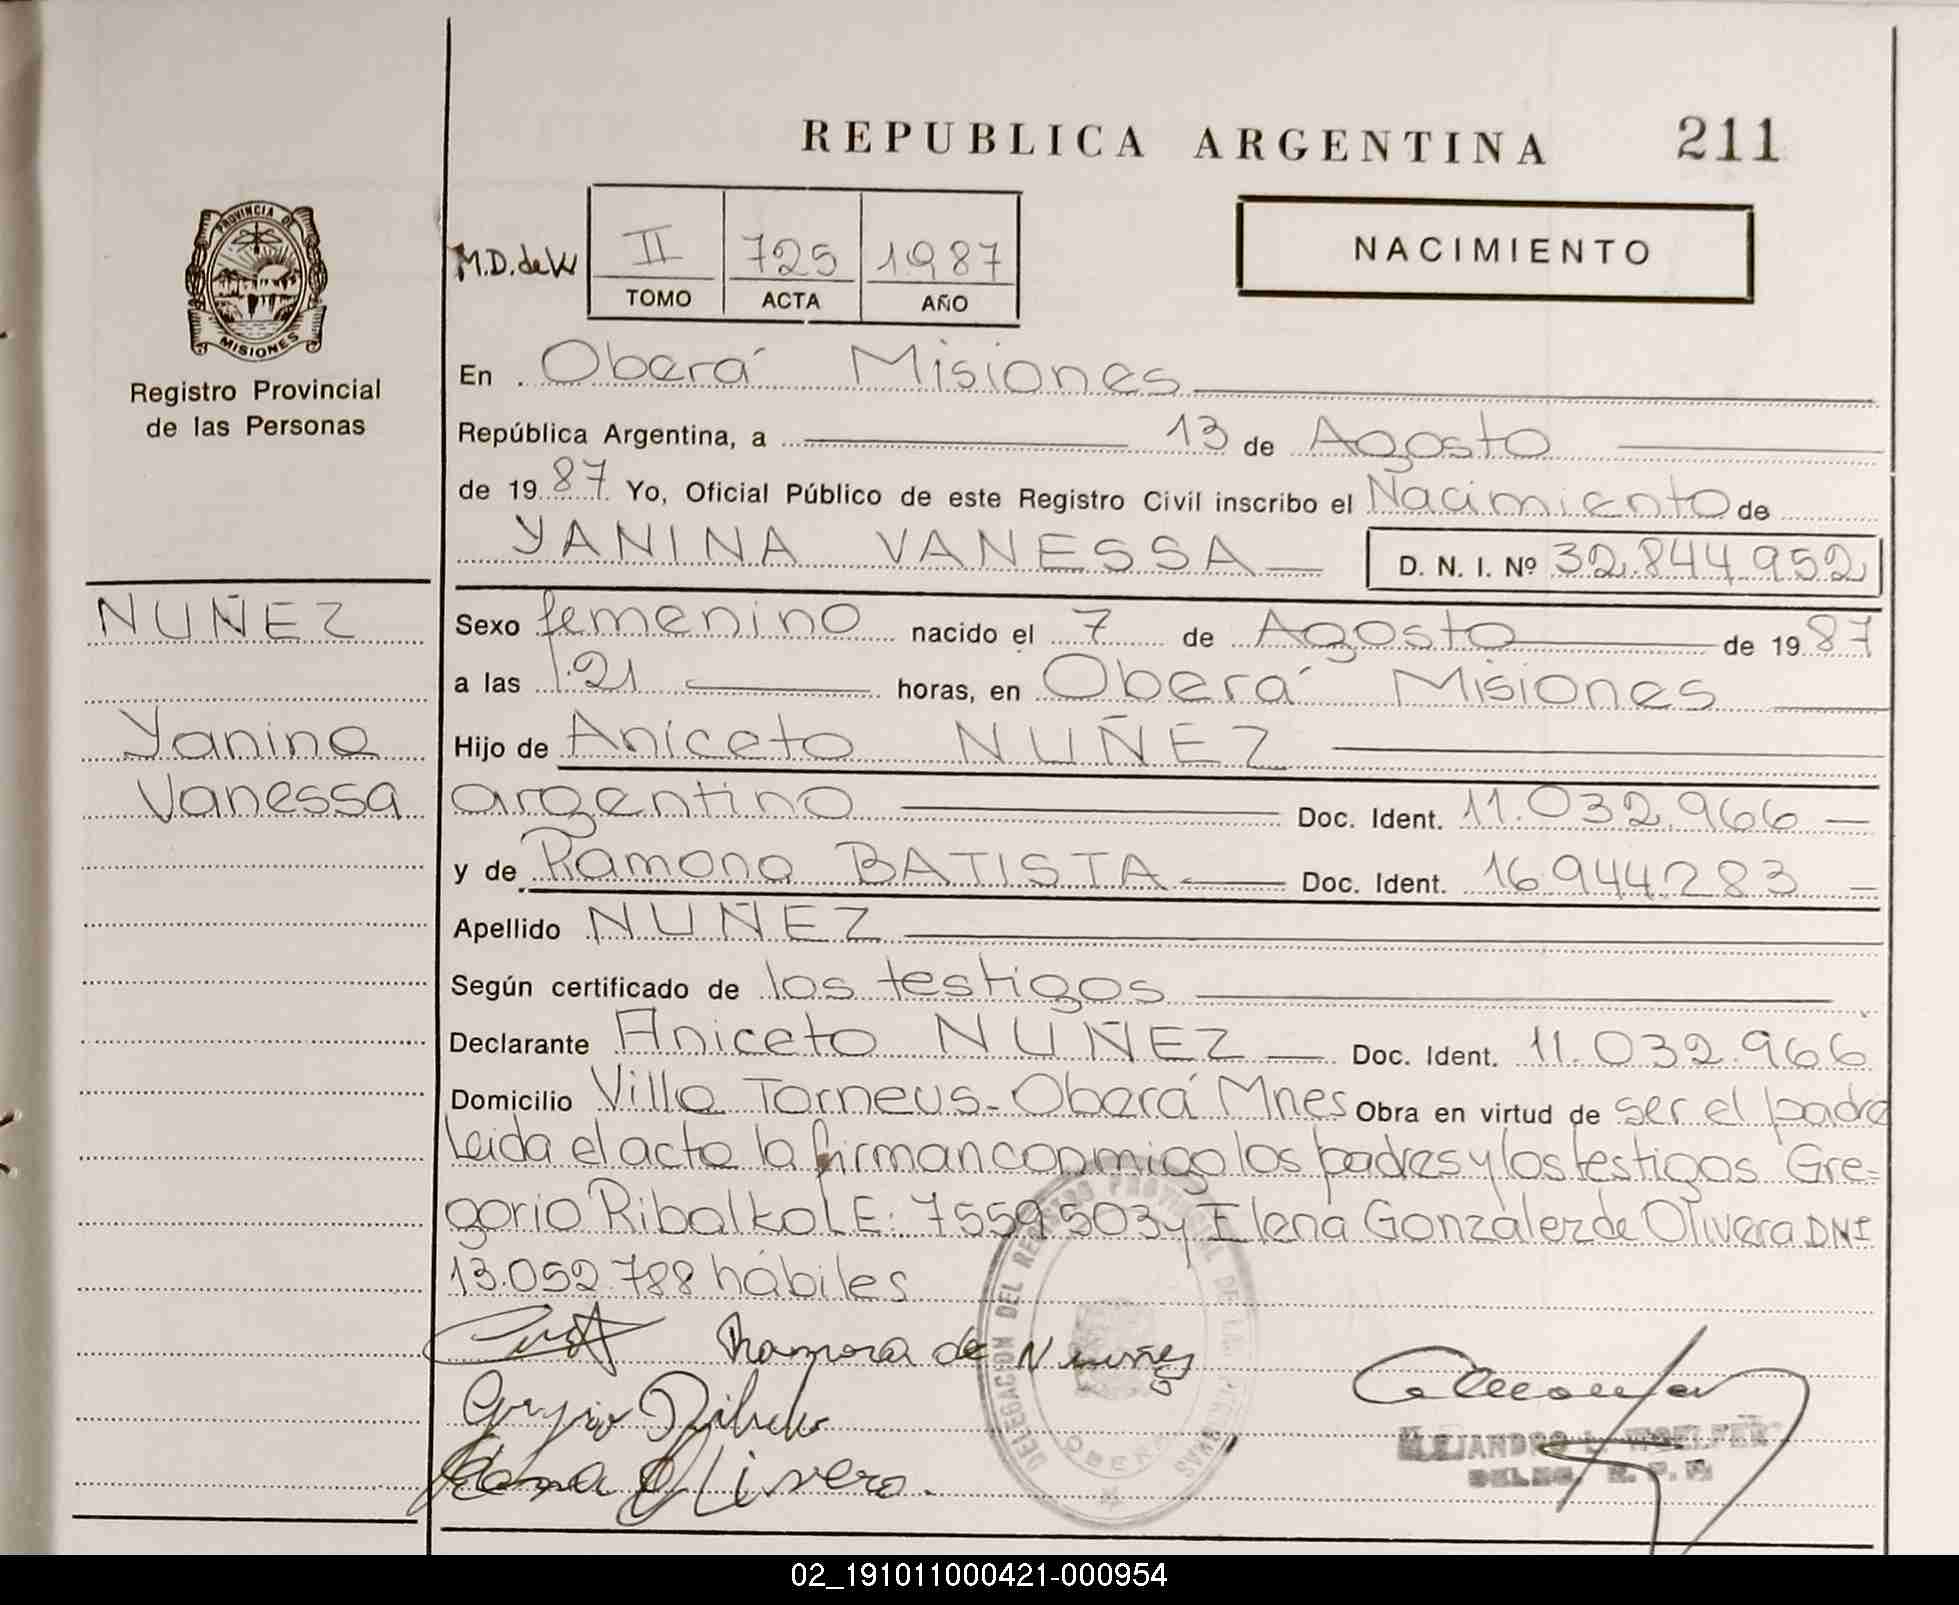 REPUBLICA ARGENTINA 211
PROVINCIA DE
MISIONES
Registro Provincial
de las Personas
M.D. de W II 725 1987
TOMO ACTA AÑO
NACIMIENTO
En Oberá Misiones
República Argentina, a 13 de Agosto
de 1987 Yo, Oficial Público de este Registro Civil inscribo el Nacimiento de
YANINA VANESSA D. N. I. Nº 32.844.952
NUÑEZ
Yanina
Vanessa
Sexo femenino nacido el 7 de Agosto de 1987
a las 1.21 horas, en Oberá Misiones
Hijo de Aniceto NUÑEZ
argentino Doc. Ident. 11.032.966
y de Ramona BATISTA Doc. Ident. 16.944.283
Apellido NUÑEZ
Según certificado de los testigos
Declarante Aniceto NUÑEZ Doc. Ident. 11.032.966
Domicilio Villa Torneus - Oberá Mnes Obra en virtud de ser el padre
Leida el acta la firman conmigo los padres y los testigos Gre=
gorio Ribalko L.E: 7559503 y Elena Gonzalez de Olivera DNI
13.052.788 hábiles
Ramona de Nuñez
Elena Olivera.
DELEGACION DEL REGISTRO PROVINCIAL DE LAS PERSONAS
OBERA
ALEJANDRO L. WOELFER
DELEG. R. P. P.
02_191011000421-000954